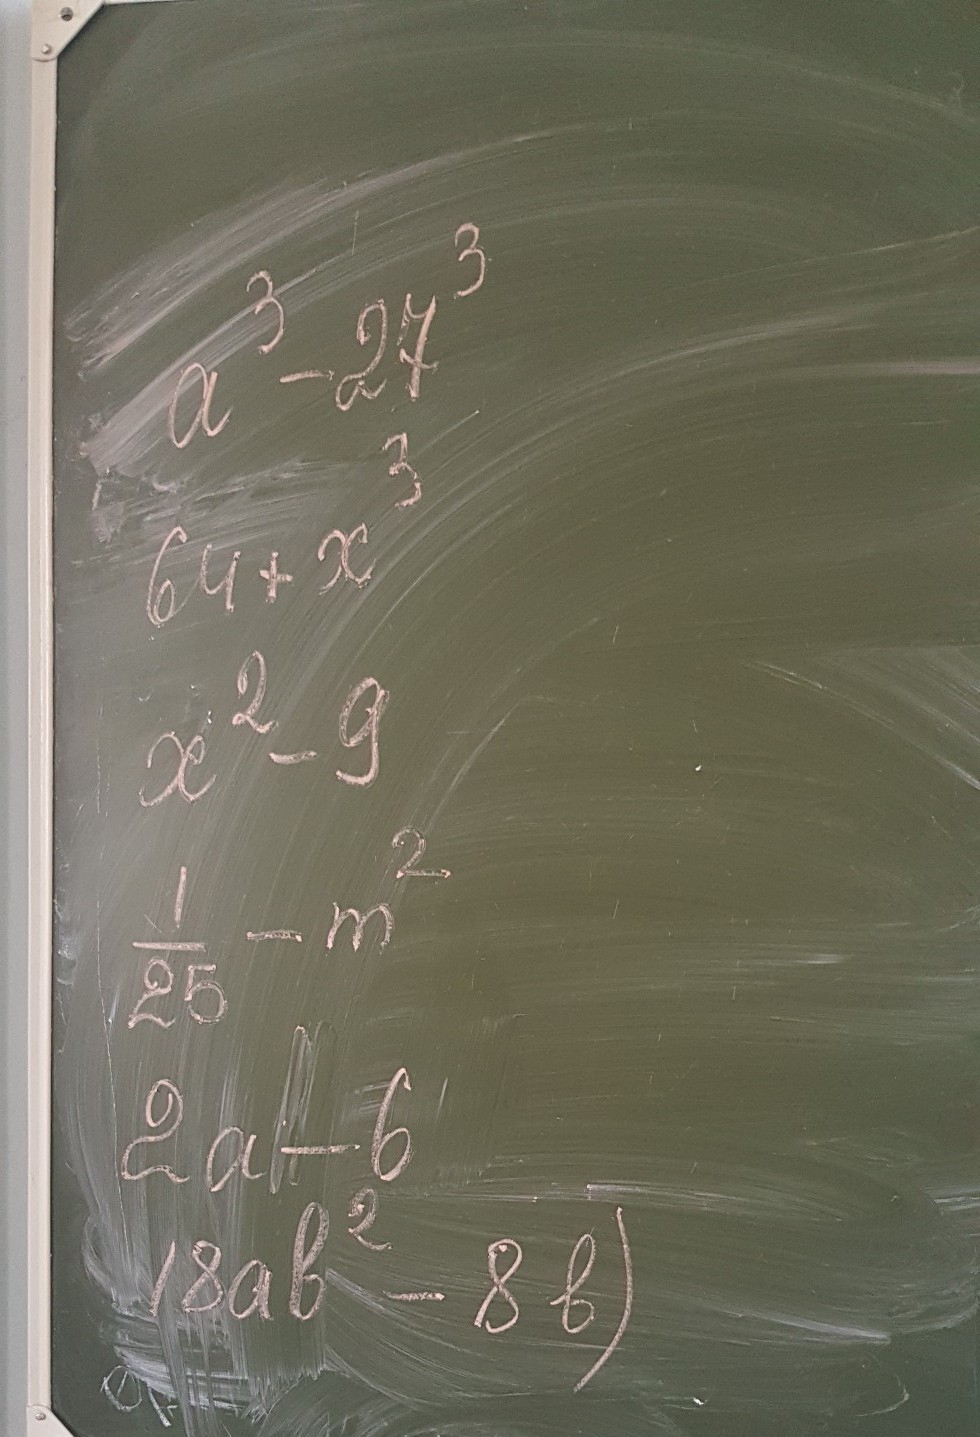 a³ - 27³
64 + x³
x² - 9
1/25 - m²
2a - 6
18ab² - 8b)